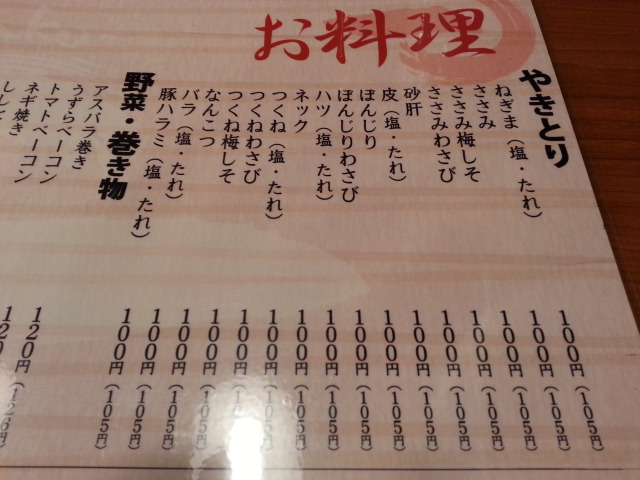 お料理
やきとり
ねぎま（塩・たれ） 100円（105円）
ささみ 100円（105円）
ささみ梅しそ 100円（105円）
ささみわさび 100円（105円）
砂肝 100円（105円）
皮（塩・たれ） 100円（105円）
ぼんじり 100円（105円）
ぼんじりわさび 100円（105円）
ハツ（塩・たれ） 100円（105円）
ネック 100円（105円）
つくね（塩・たれ） 100円（105円）
つくねわさび 100円（105円）
つくね梅しそ 100円（105円）
なんこつ 100円（105円）
バラ（塩・たれ） 100円（105円）
豚ハラミ（塩・たれ） 100円（105円）
野菜・巻き物
アスパラ巻き 120円（126円）
うずらベーコン 120
トマトベーコン
ネギ焼き